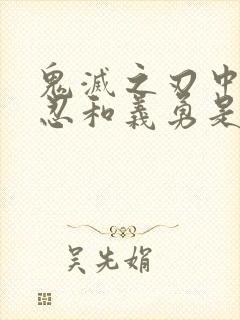 鬼滅之刃中
忍和義勇是
吴先娟